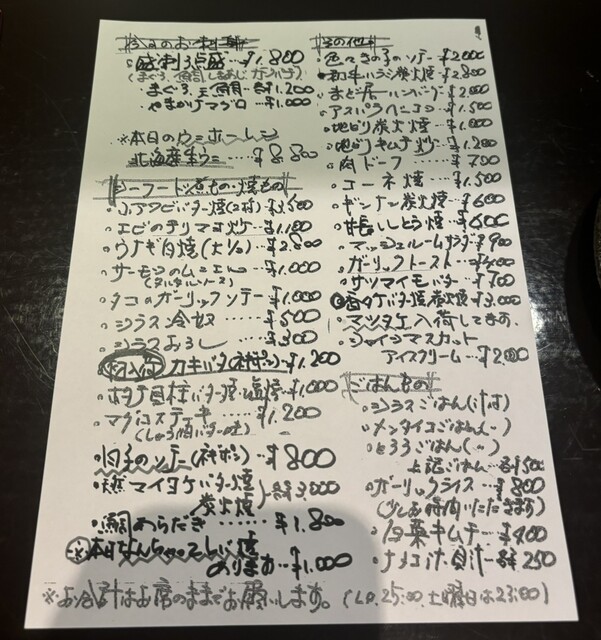 今日のお刺身
盛刺3点盛…¥1,800
(まぐろ、鯛、しまあじ、カンパチ)
まぐろ、天鯛…各¥1,200
やまかけマグロ…¥1,000
※本日のウニホームラン
北海産生ウニ…¥8,800
シーフード煮もの・焼もの
バター焼(2村)¥3,500
エビのチリマヨ炒…¥1,100
ウナギ白焼(大½)…¥2,800
サーモンのムニエル…¥1,000
(タルタルソース)
タコのガーリックソテー…¥1,000
シラス冷奴…¥500
シラスおろし…¥300
カキバタ(ポン)…¥1,200
ホタテ貝柱バター焼・塩焼…¥1,000
マグロステーキ……¥1,200
(しょう油バター味)
白子のソテー(ポン)…¥800
天然マイタケバター焼
炭火焼 各¥3,000
鯛あらだき…¥1,800
本日なんちゃって
あります…¥1,000
※お会計はお席のままでお願いします。(L.O.25:00、土曜日は23:00)
その他
色々きの子のソテー…¥2,000
和牛ハラシ炭火焼…¥2,800
まど居ハンバーグ…¥2,000
アスパラベーコン…¥1,500
地どり炭火焼…¥1,000
地どりキムチ炒…¥1,200
肉ドーフ…¥700
コーネ焼…¥1,500
ギンナン炭火焼…¥600
甘長しとう焼…¥600
マッシュルームサラダ…¥900
ガーリックトースト…¥400
サツマイモバター…¥700
バター焼炭火焼¥3,000
マツタケ入荷してます。
シャインマスカット
アイスクリーム…¥2,000
ごはんもの
シラスごはん(汁付)
メンタイコごはん(〃)
とろろごはん(〃)
上記ごはん…各¥500
ガーリックライス…¥800
(少しお時間いただきます)
白菜キムチ…¥400
ナメコ汁、貝汁…各¥250